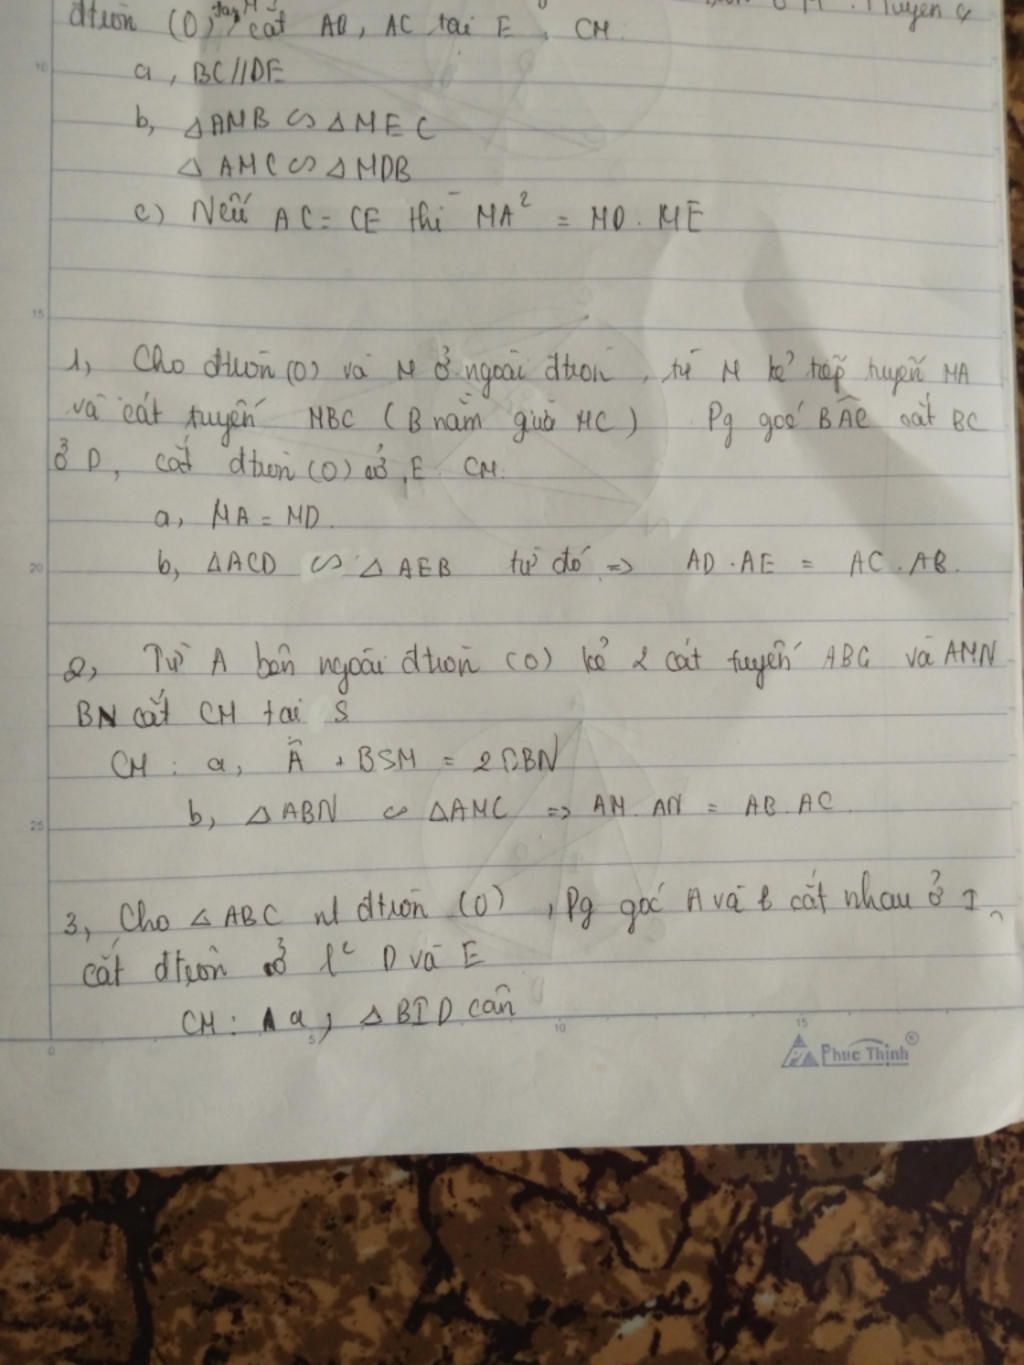 đtròn (O) tại M, cắt AB, AC tại E. CM.
10
a, BC//DE
b, △AMB ∽ △MEC
△AMC ∽ △MDB
c) Nếu AC = CE thì MA² = MD . ME
15
1, Cho đtròn (O) và M ở ngoài đtròn, từ M kẻ tiếp tuyến MA
và cát tuyến MBC (B nằm giữa MC) Pg góc BAC cắt BC
ở D, cắt đtròn (O) ở E. CM.
a, MA = MD.
20
b, △ACD ∽ △AEB từ đó ⇒ AD . AE = AC . AB.
2, Từ A bên ngoài đtròn (O) kẻ 2 cát tuyến ABC và AMN
BN cắt CM tại S
CM: a, Â + BSM = 2 CBN
25
b, △ABN ∽ △AMC ⇒ AM . AN = AB . AC.
3, Cho △ABC nt đtròn (O), Pg góc A và B cắt nhau ở I,
cắt đtròn ở D và E
CM: a, △BID cân
0 5 10 15
Phuc Thinh®